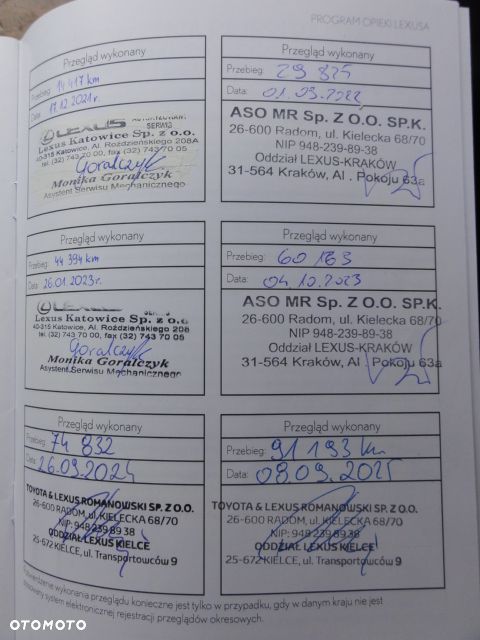 PROGRAM OPIEKI LEXUSA
Przegląd wykonany
Przebieg: 14 417 km
Data: 17.12.2021r.
LEXUS
SERWIS
Lexus Katowice Sp. z o.o.
40-315 Katowice, Al. Roździeńskiego 208A
tel. (32) 743 70 00, fax (32) 743 70 05
Goralczyk
Monika Goralczyk
Asystent Serwisu Mechanicznego
Przegląd wykonany
Przebieg: 29 825
Data: 01.09.2022
ASO MR Sp. Z O.O. SP.K.
26-600 Radom, ul. Kielecka 68/70
NIP 948-239-89-38
Oddział LEXUS-KRAKÓW
31-564 Kraków, Al . Pokoju 63a
Przegląd wykonany
Przebieg: 44 394 km
Data: 26.01.2023r.
LEXUS
Lexus Katowice Sp. z o.o.
40-315 Katowice, Al. Roździeńskiego 208
tel. (32) 743 70 00, fax (32) 743 70 05
Goralczyk
Monika Goralczyk
Asystent Serwisu Mechanicznego
Przegląd wykonany
Przebieg: 60 163
Data: 04.10.2023
ASO MR Sp. Z O.O. SP.K.
26-600 Radom, ul. Kielecka 68/70
NIP 948-239-89-38
Oddział LEXUS-KRAKÓW
31-564 Kraków, Al . Pokoju 63a
Przegląd wykonany
Przebieg: 74 832
Data: 26.09.2024
TOYOTA & LEXUS ROMANOWSKI SP. Z O.O.
26-600 RADOM, ul. KIELECKA 68/70
NIP: 948 239 89 38
ODDZIAŁ LEXUS KIELCE
25-672 KIELCE, ul. Transportowców 9
Przegląd wykonany
Przebieg: 91 193 km
Data: 08.09.2025
TOYOTA & LEXUS ROMANOWSKI SP. Z O.O.
26-600 RADOM, ul. KIELECKA 68/70
NIP: 948 239 89 38
ODDZIAŁ LEXUS KIELCE
25-672 KIELCE, ul. Transportowców 9
wykonania przeglądu konieczne jest tylko w przypadku, gdy w danym kraju nie jest
stosowany system elektronicznej rejestracji przeglądów okresowych.
OTOMOTO